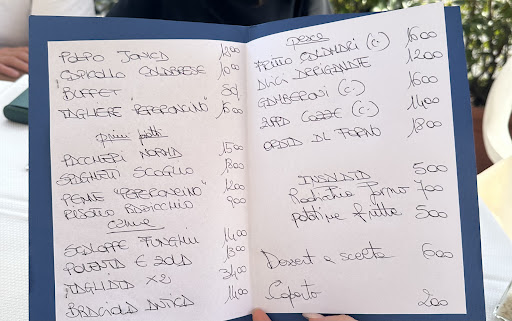 POLPO JONICA 1800
COPICOLLO CALABRESE 1000
BUFFET 800
TAGLIERE "PEPERONCINO" 1500
primi piatti
PACCHERI NORMA 1500
SPAGHETTI SCOGLIO 1800
PENNE "PEPERONCINO" 1200
RISOTTO RADICCHIO 900
carne
SCALOPPE FUNGHI 1400
POLENTA E 1300
TAGLIATA X2 3400
BRACIOLA ANTICA 1400
pesce
FRITTO CALAMARI (C.) 1600
ALICI DERIGANATE 1200
GAMBERONI (C.) 1600
ZUPPA COZZE (C.) 1400
ORATA AL FORNO 1800
INSALATA 500
Radicchio Forno 700
patatine fritte 500
Dessert a scelta 600
Coperto 200